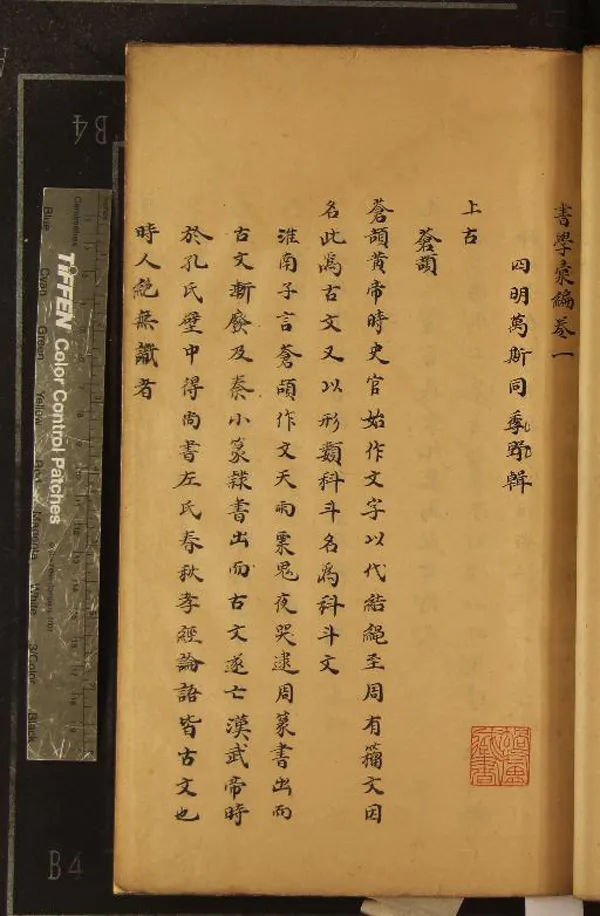 書學彙編卷一
四明萬斯同季野輯
上古
蒼頡
蒼頡黃帝時史官始作文字以代結繩至周有籀文因
名此爲古文又以形類科斗名爲科斗文
淮南子言蒼頡作文天雨粟鬼夜哭逮周篆書出而
古文漸廢及秦小篆隸書出而古文遂亡漢武帝時
於孔氏壁中得尚書左氏春秋孝經論語皆古文也
時人絶無識者
B4
Centimetres
TIFFEN Color Control Patches
Blue
Cyan
Green
Yellow
Red
Magenta
White
3/Color
Black
B4